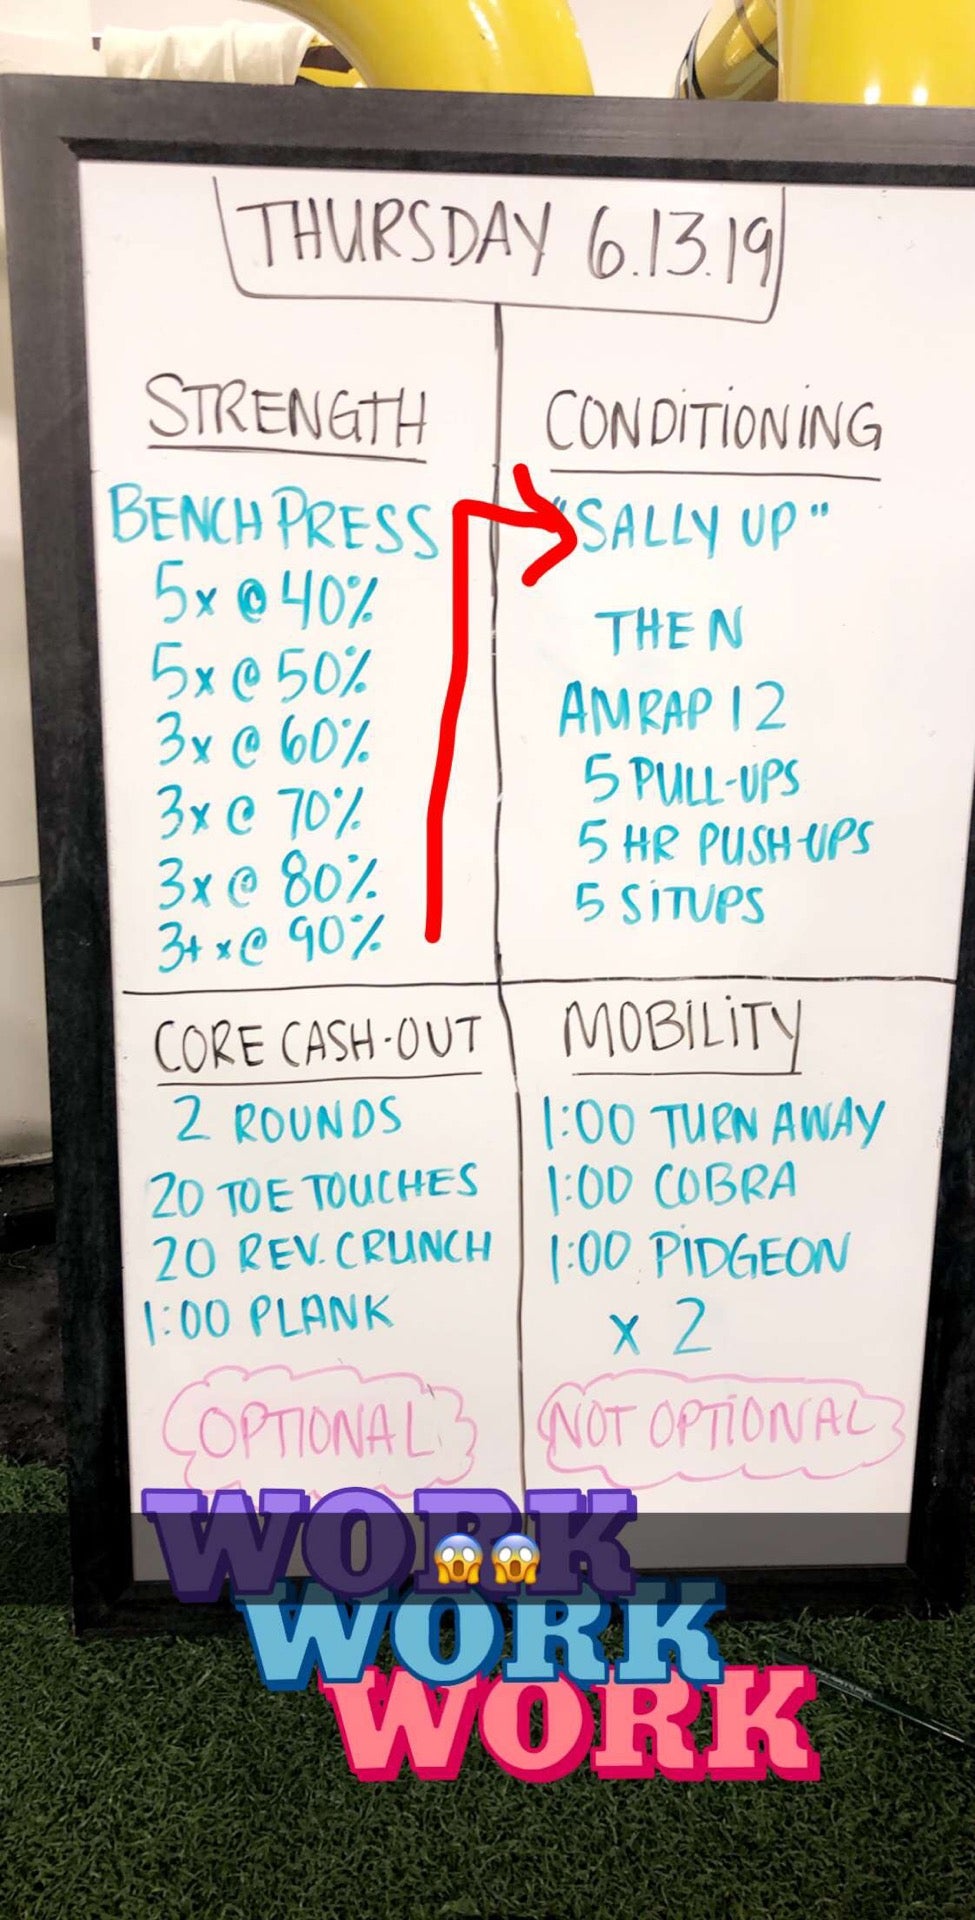 THURSDAY 6.13.19
STRENGTH
BENCH PRESS
5x @ 40%
5x @ 50%
3x @ 60%
3x @ 70%
3x @ 80%
3+ x @ 90%
CONDITIONING
"SALLY UP"
THEN
AMRAP 12
5 PULL-UPS
5 HR PUSH-UPS
5 SITUPS
CORE CASH-OUT
2 ROUNDS
20 TOE TOUCHES
20 REV. CRUNCH
1:00 PLANK
OPTIONAL
MOBILITY
1:00 TURN AWAY
1:00 COBRA
1:00 PIDGEON
x 2
NOT OPTIONAL
WORK
😱😱
WORK
WORK